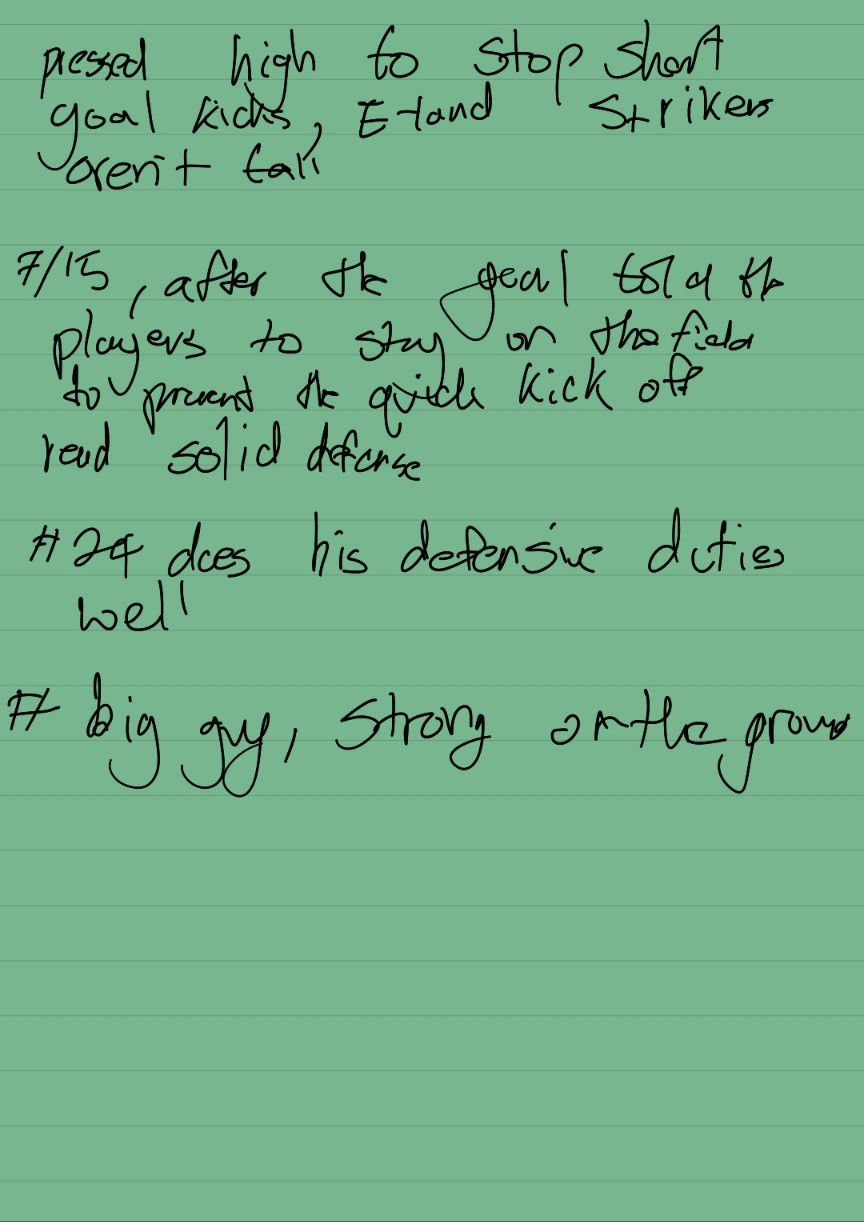 pressed high to stop short
goal kicks, E-land strikers
aren't tall
7/15, after the goal told the
players to stay on the field
to prevent the quick kick off
read solid defense
#24 does his defensive duties
well
# big guy, strong on the ground